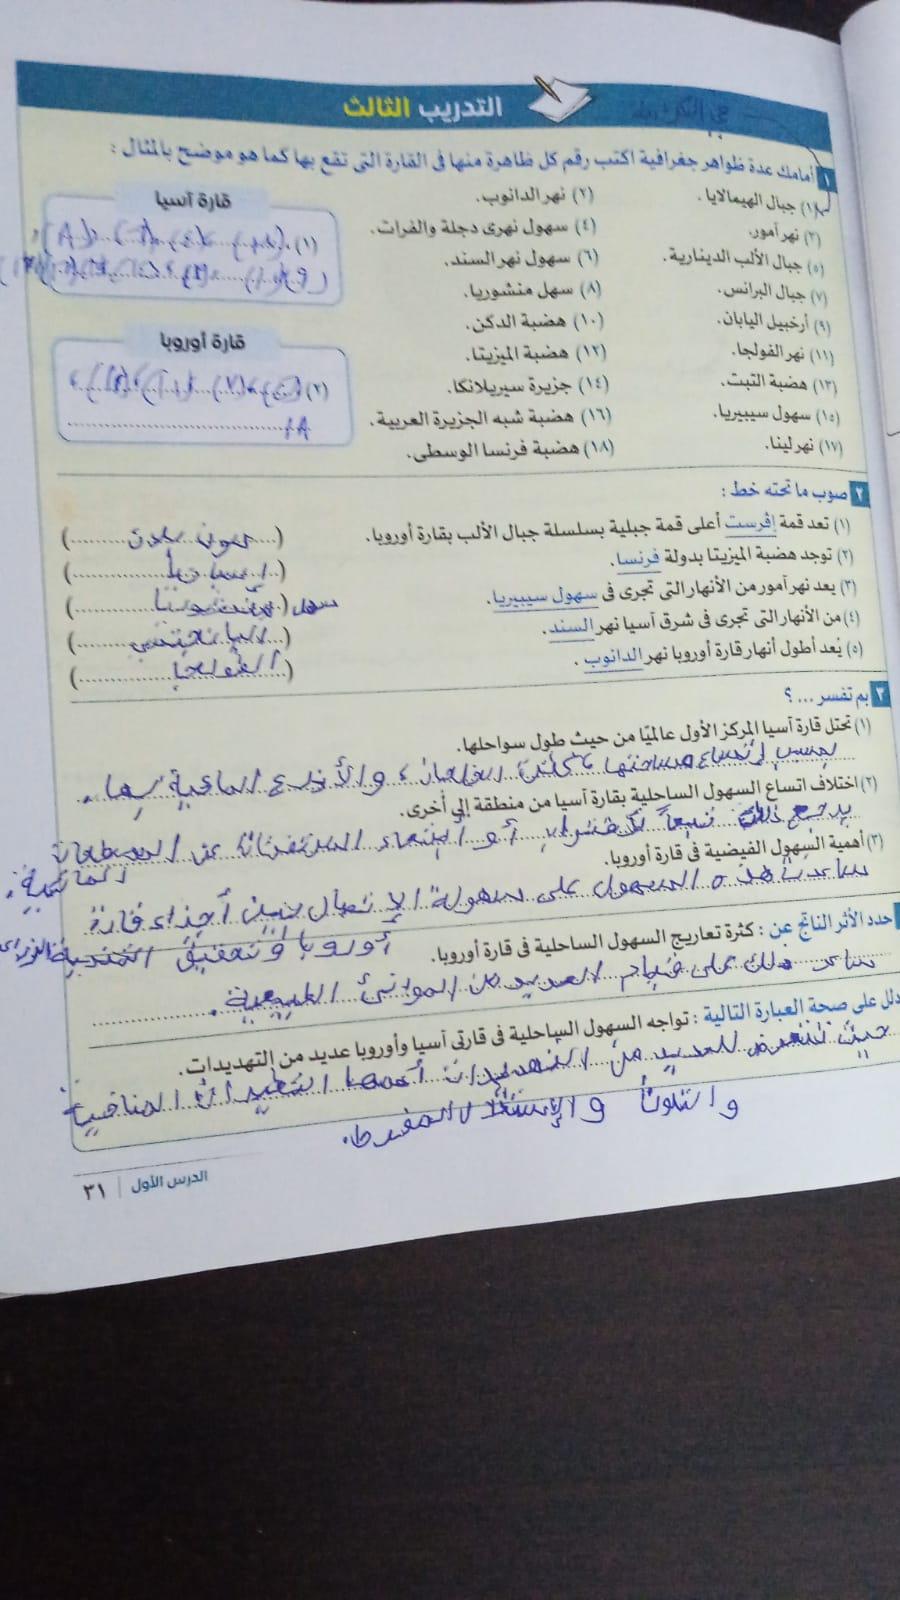 التدريب الثالث
١ أمامك عدة ظواهر جغرافية اكتب رقم كل ظاهرة منها فى القارة التى تقع بها كما هو موضح بالمثال :
(١) جبال الهيمالايا.
(٢) نهر الدانوب.
(٣) نهر آمور.
(٤) سهول نهرى دجلة والفرات.
(٥) جبال الألب الدينارية.
(٦) سهول نهر السند.
(٧) جبال البرانس.
(٨) سهل منشوريا.
(٩) أرخبيل اليابان.
(١٠) هضبة الدكن.
(١١) نهر الفولجا.
(١٢) هضبة الميزيتا.
(١٣) هضبة التبت.
(١٤) جزيرة سيريلانكا.
(١٥) سهول سيبيريا.
(١٦) هضبة شبه الجزيرة العربية.
(١٧) نهر لينا.
(١٨) هضبة فرنسا الوسطى.
قارة آسيا
(١)
قارة أوروبا
(٢)
١٨
٢ صوب ما تحته خط :
(١) تعد قمة إفرست أعلى قمة جبلية بسلسلة جبال الألب بقارة أوروبا. (مون بلان)
(٢) توجد هضبة الميزيتا بدولة فرنسا. (إسبانيا)
(٣) يعد نهر آمور من الأنهار التى تجرى فى سهول سيبيريا. (منشوريا) سهل
(٤) من الأنهار التى تجرى فى شرق آسيا نهر السند. (اليانجتسي)
(٥) يُعد أطول أنهار قارة أوروبا نهر الدانوب. (الفولجا)
٣ بم تفسر ... ؟
(١) تحتل قارة آسيا المركز الأول عالميًا من حيث طول سواحلها.
بسبب إتساع مساحتها الخلجان، والأذرع المائية بها.
(٢) اختلاف اتساع السهول الساحلية بقارة آسيا من منطقة إلى أخرى.
يرجع ذلك تبعاً لاقتراب أو ابتعاد المرتفعات عن المسطحات المائية.
(٣) أهمية السهول الفيضية فى قارة أوروبا.
ساعدت هذه السهول على سهولة الاتصال بين أجزاء قارة
أوروبا وتحقيق التنمية الزراعية
حدد الأثر الناتج عن : كثرة تعاريج السهول الساحلية فى قارة أوروبا.
ساعد ذلك على قيام العديد من الموانئ الطبيعية.
دلل على صحة العبارة التالية : تواجه السهول الساحلية فى قارتى آسيا وأوروبا عديد من التهديدات.
حيث تتعرض للعديد من التهديدات أهمها التغيرات المناخية
والتلوث والإستغلال المفرط.
الدرس الأول | ٣١